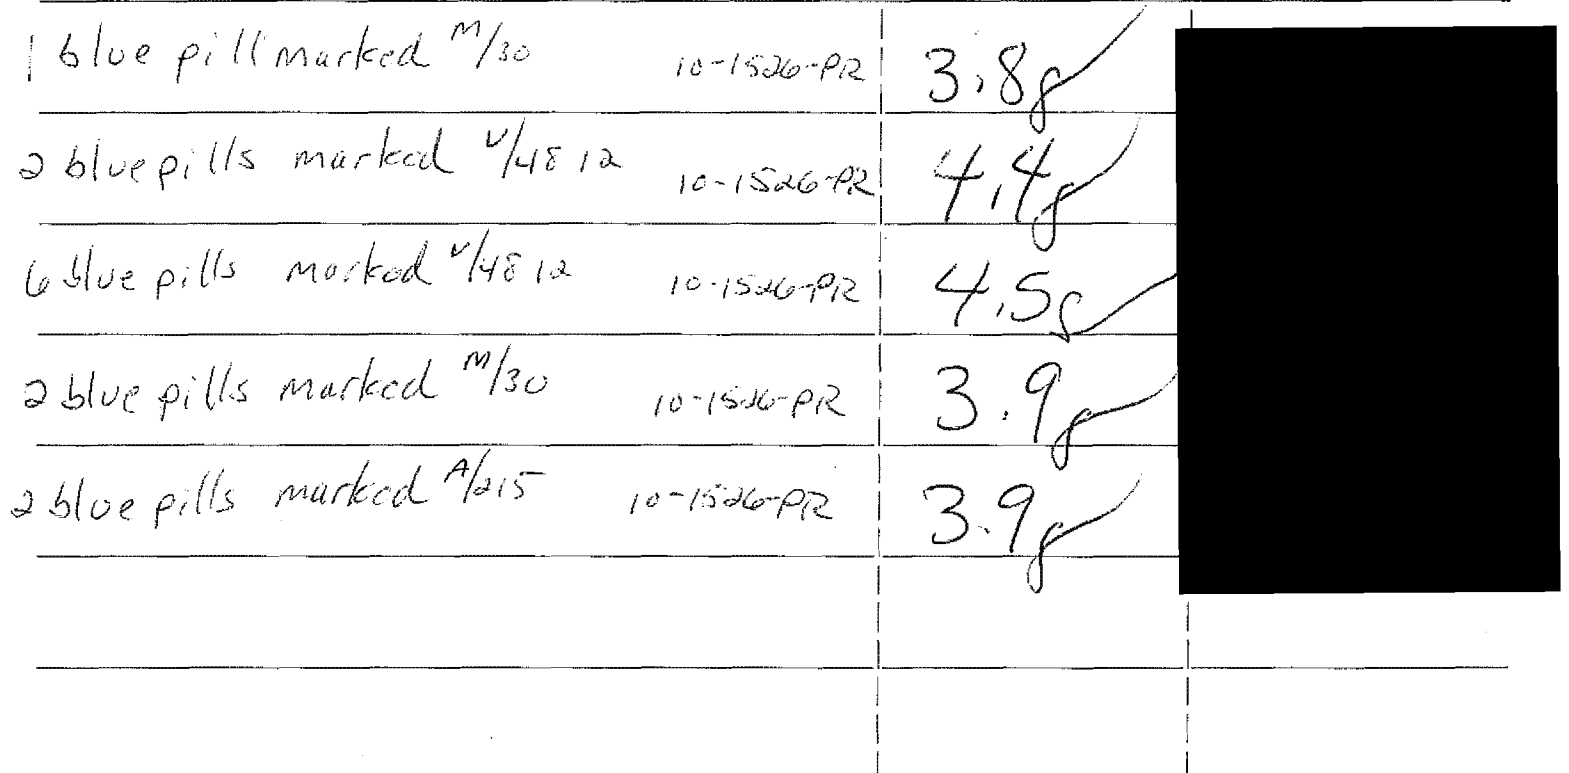 1 blue pill marked M/30 10-1526-PR 3.8g
2 blue pills marked V/48 12 10-1526-PR 4.4g
6 blue pills marked V/48 12 10-1526-PR 4.5g
2 blue pills marked M/30 10-1526-PR 3.9g
2 blue pills marked A/215 10-1526-PR 3.9g